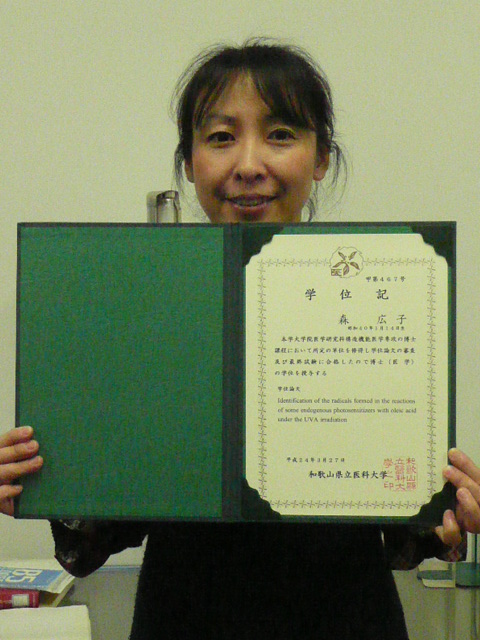 甲第463号
学位記
森 広子
本学大学院医学研究科構造機能医学専攻の博士
課程において所定の単位を修得し学位論文の審査
及び最終試験に合格したので博士(医学)
の学位を授与する
学位論文
Identification of the radicals formed in the reactions
of some endogenous photosensitizers with oleic acid
under the UVA irradiation
平成24年3月27日
和歌山県立医科大学